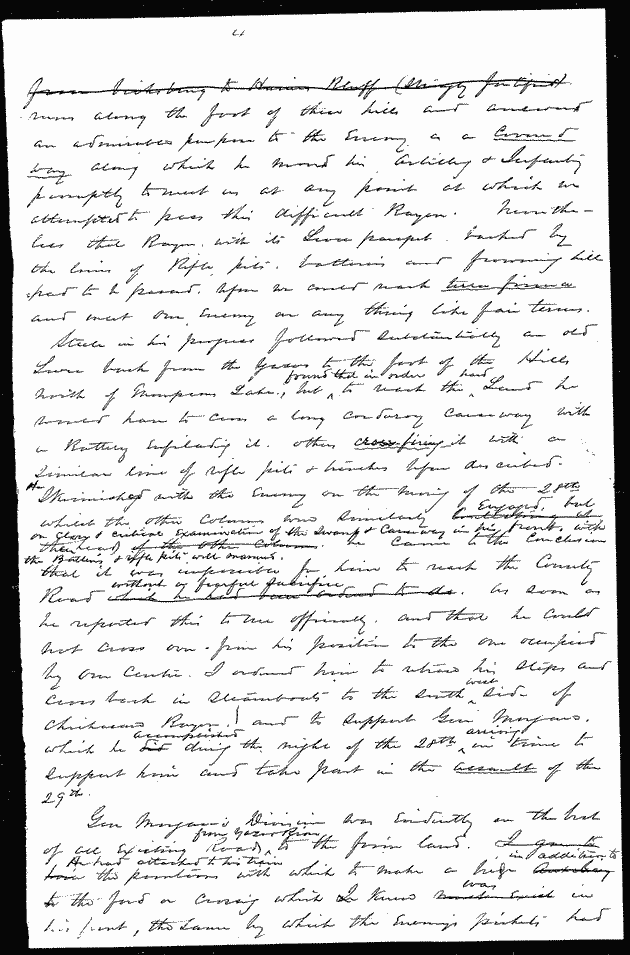 4
from Vicksburg to Haines Bluff (strongly fortified)
runs along the foot of these hills and answered
an admirable purpose to the Enemy as a Covered
way along which he moved his Artillery & Infantry
promptly to meet us at any point at which we
attempted to pass this difficult Bayou. Neverthe-
less that Bayou, with its Levee parapet backed by
the lines of Rifle pits, batteries and frowning hills
had to be passed, before we could reach terra firma
and meet our Enemy on any thing like fair terms.
Steele in his progress followed substantially an old
Levee back from the Yazoo to the foot of the Hills
found that in order hard
north of Thompsons Lake, but to reach the Land he
would have to cross a long corduroy causeway with
a Battery enfilading it, others cross firing it with a
similar line of rifle pits & trenches before described.
He
Skirmished with the Enemy on the morning of the 28th
whilst the other Columns were similarly Engaged, but
on close & critical examination of the Swamp & Causeway in his front, with
the Batteries & rifle pits well manned.
of the other Columns he came to the conclusion
that it was impossible for him to reach the County
without a fearful sacrifice
Road as he had been ordered to do. As soon as
he reported this to me officially, and that he could
not cross over from his position to the one occupied
by our Centre, I ordered him to retrace his steps and
west
cross back in steamboats to the south side of
Chickasaw Bayou, and to support Gen Morgans,
accomplished arriving
which he did during the night of the 28th in time to
support him and take part in the assault of the
29th.
Gen Morgan's Division was evidently on the best
from Yazoo River
of all existing Roads to the firm land.
He had attached to his train in addition to
the pontoons with which to make a bridge
was
to the ford or crossing which I knew in
his front, the same by which the Enemys pickets had